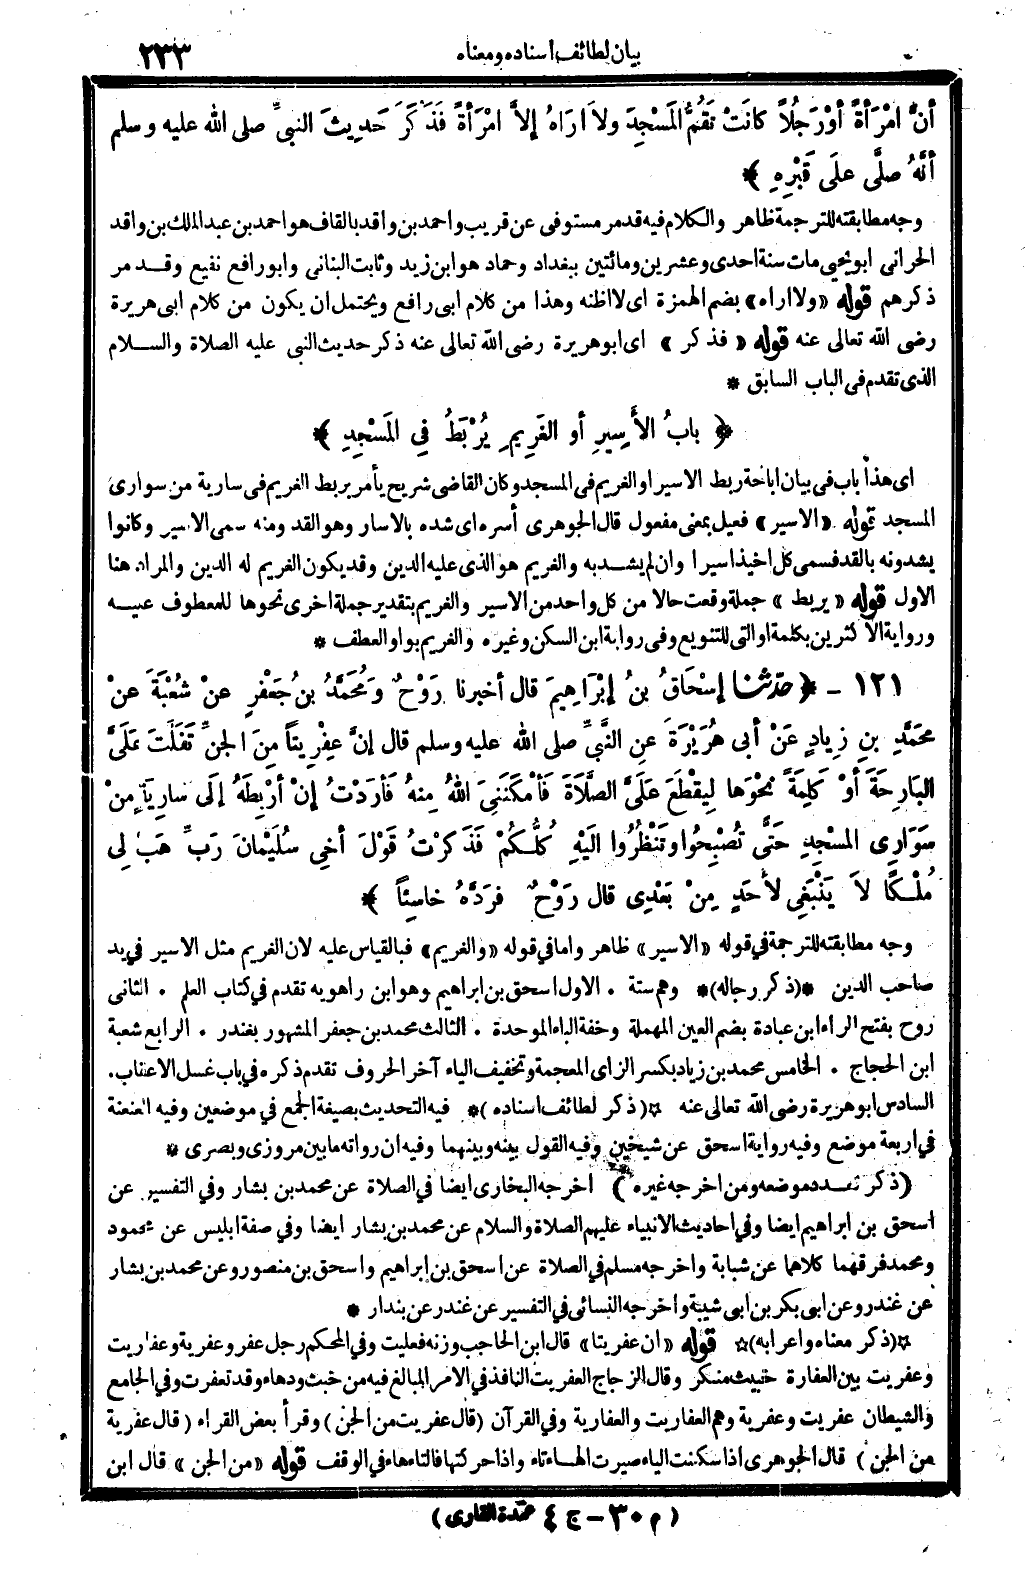 بيان لطائف أسناده ومعناه
٢٣٣
أنَّ امْرَأةً أوْ رَجُلاً كانَتْ تَقُمُّ المَسْجِدَ ولاَ اراهُ إلاَّ امْرَأةً فَذَكَرَ حَدِيثَ النبيِّ صلى الله عليه وسلم
أنَّهُ صلَّى علَى قَبْرِهِ ﴾ *
وجه مطابقته للترجمة ظاهر والكلام فيه قد مر مستوفى عن قريب واحمد بن واقد بالقاف هو احمد بن عبد الملك بن واقد
الحرانى ابو يحيى مات سنة احدى وعشرين ومائتين ببغداد وحماد هو ابن زيد وثابت البنانى وابو رافع نفيع وقد مر
ذكرهم قوله «ولا اراه» بضم الهمزة اى لا اظنه وهذا من كلام ابى رافع ويحتمل ان يكون من كلام ابى هريرة
رضى الله تعالى عنه قوله « فذكر » اى ابو هريرة رضى الله تعالى عنه ذكر حديث النبى عليه الصلاة والسلام
الذى تقدم فى الباب السابق *
﴿ بابُ الأسِيرِ أو الغَرِيمِ يُرْبَطُ فِي المَسْجِدِ ﴾
اى هذا باب فى بيان اباحة ربط الاسير او الغريم فى المسجد وكان القاضى شريح يأمر بربط الغريم فى سارية من سوارى
المسجد قوله «الاسير» فعيل بمعنى مفعول قال الجوهرى أسره اى شده بالاسار وهو القد ومنه سمى الاسير وكانوا
يشدونه بالقد فسمى كل اخيذ اسيرا وان لم يشد به والغريم هو الذى عليه الدين وقد يكون الغريم له الدين والمراد هنا
الاول قوله « يربط » جملة وقعت حالا من كل واحد من الاسير والغريم بتقدير جملة اخرى نحوها للمعطوف عبيه
ورواية الأكثرين بكلمة او التى للتنويع وفى رواية ابن السكن وغيره والغريم بواو العطف *
١٢١ - ﴿ حدثنا إسْحَاقُ بنُ إبْرَاهِيمَ قال أخبرنا رَوْحٌ ومُحَمَّدُ بنُ جَعْفَرٍ عنْ شُعْبَةَ عنْ
محَمَّدِ بنِ زِيادٍ عَنْ أبى هُرَيْرَةَ عنِ النَّبىِّ صلى الله عليه وسلم قال إنَّ عِفْرِيتاً مِنَ الجنِّ تَفَلَّتَ عَلَىَّ
البَارِحَةَ أوْ كَلِمَةً نَحْوَها لِيقْطَعَ علَىَّ الصَّلَاةَ فَأمْكَنَنِىَ اللهُ مِنهُ فأرَدْتُ إنْ أرْبِطَهُ إلَى سارِيَةٍ مِنْ
سَوَارِى المسْجِدِ حَتَّى تُصْبِحُوا وتَنْظُرُوا الَيْهِ كُلُّكُمْ فَذَكرْتُ قَوْلَ أخِى سُلَيْمَانَ رَبِّ هَبْ لِى
مُلْكًا لاَ يَنْبَغِى لأحَدٍ مِنْ بَعْدِى قال رَوْحٌ فردَّهُ خاسِئاً ﴾
وجه مطابقته للترجمة فى قوله «الاسير» ظاهر واما فى قوله «والغريم» فبالقياس عليه لان الغريم مثل الاسير فى يد
صاحب الدين *(ذكر رجاله)* وهم ستة . الاول اسحق بن ابراهيم وهو ابن راهويه تقدم فى كتاب العلم . الثانى
روح بفتح الراء ابن عبادة بضم العين المهملة وخفة الباء الموحدة . الثالث محمد بن جعفر المشهور بغندر . الرابع شعبة
ابن الحجاج . الخامس محمد بن زياد بكسر الزاى المعجمة وتخفيف الياء آخر الحروف تقدم ذكره فى باب غسل الاعقاب.
السادس ابو هريرة رضى الله تعالى عنه *(ذكر لطائف اسناده)* فيه التحديث بصيغة الجمع فى موضعين وفيه العنعنة
فى اربعة موضع وفيه رواية اسحق عن شيخين وفيه القول بينه وبينهما وفيه ان رواته ما بين مروزى وبصرى *
(ذكر تعدد موضعه ومن اخرجه غيره) اخرجه البخارى ايضا فى الصلاة عن محمد بن بشار وفى التفسير عن
اسحق بن ابراهيم ايضا وفى احاديث الانبياء عليهم الصلاة والسلام عن محمد بن بشار ايضا وفى صفة ابليس عن محمود
ومحمد فرقهما كلاهما عن شبابة واخرجه مسلم فى الصلاة عن اسحق بن إبراهيم واسحق بن منصور وعن محمد بن بشار
عن غندر وعن ابى بكر بن ابى شيبة واخرجه النسائى فى التفسير عن غندر عن بندار *
*(ذكر معناه واعرابه)* قوله «ان عفريتا» قال ابن الحاجب وزنه فعليت وفى المحكم رجل عفر وعفرية وعفاريت
وعفريت بين العفارة خبيث منكر وقال الزجاج العفريت النافذ فى الامر المبالغ فيه من خبث ودهاء وقد تعفرت وفى الجامع
والشيطان عفريت وعفرية وهم العفاريت والعفارية وفى القرآن (قال عفريت من الجن) وقرأ بعض القراء (قال عفرية
من الجن) قال الجوهرى اذا سكنت الياء صيرت الهاء تاء واذا حركتها فالتاء هاء فى الوقف قوله «من الجن» قال ابن
(م ٣٠ - ج ٤ عمدة القارى)